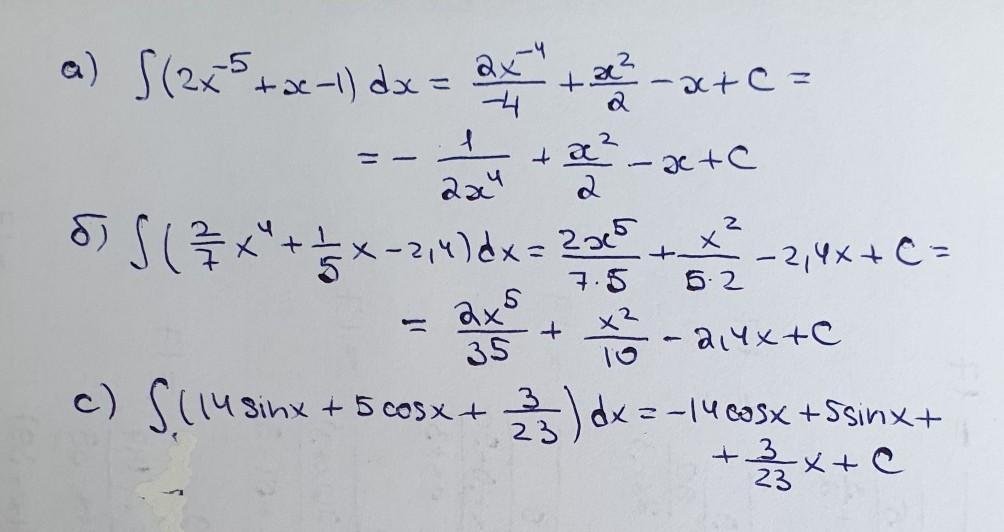 а) ∫(2x⁻⁵+x-1) dx = 2x⁻⁴/-4 + x²/2 - x + C =
= - 1/2x⁴ + x²/2 - x + C
б) ∫(2/7 x⁴ + 1/5 x - 2,4) dx = 2x⁵/7·5 + x²/5·2 - 2,4x + C =
= 2x⁵/35 + x²/10 - 2,4x + C
c) ∫(14 sinx + 5 cosx + 3/23) dx = -14 cosx + 5 sinx +
+ 3/23 x + C